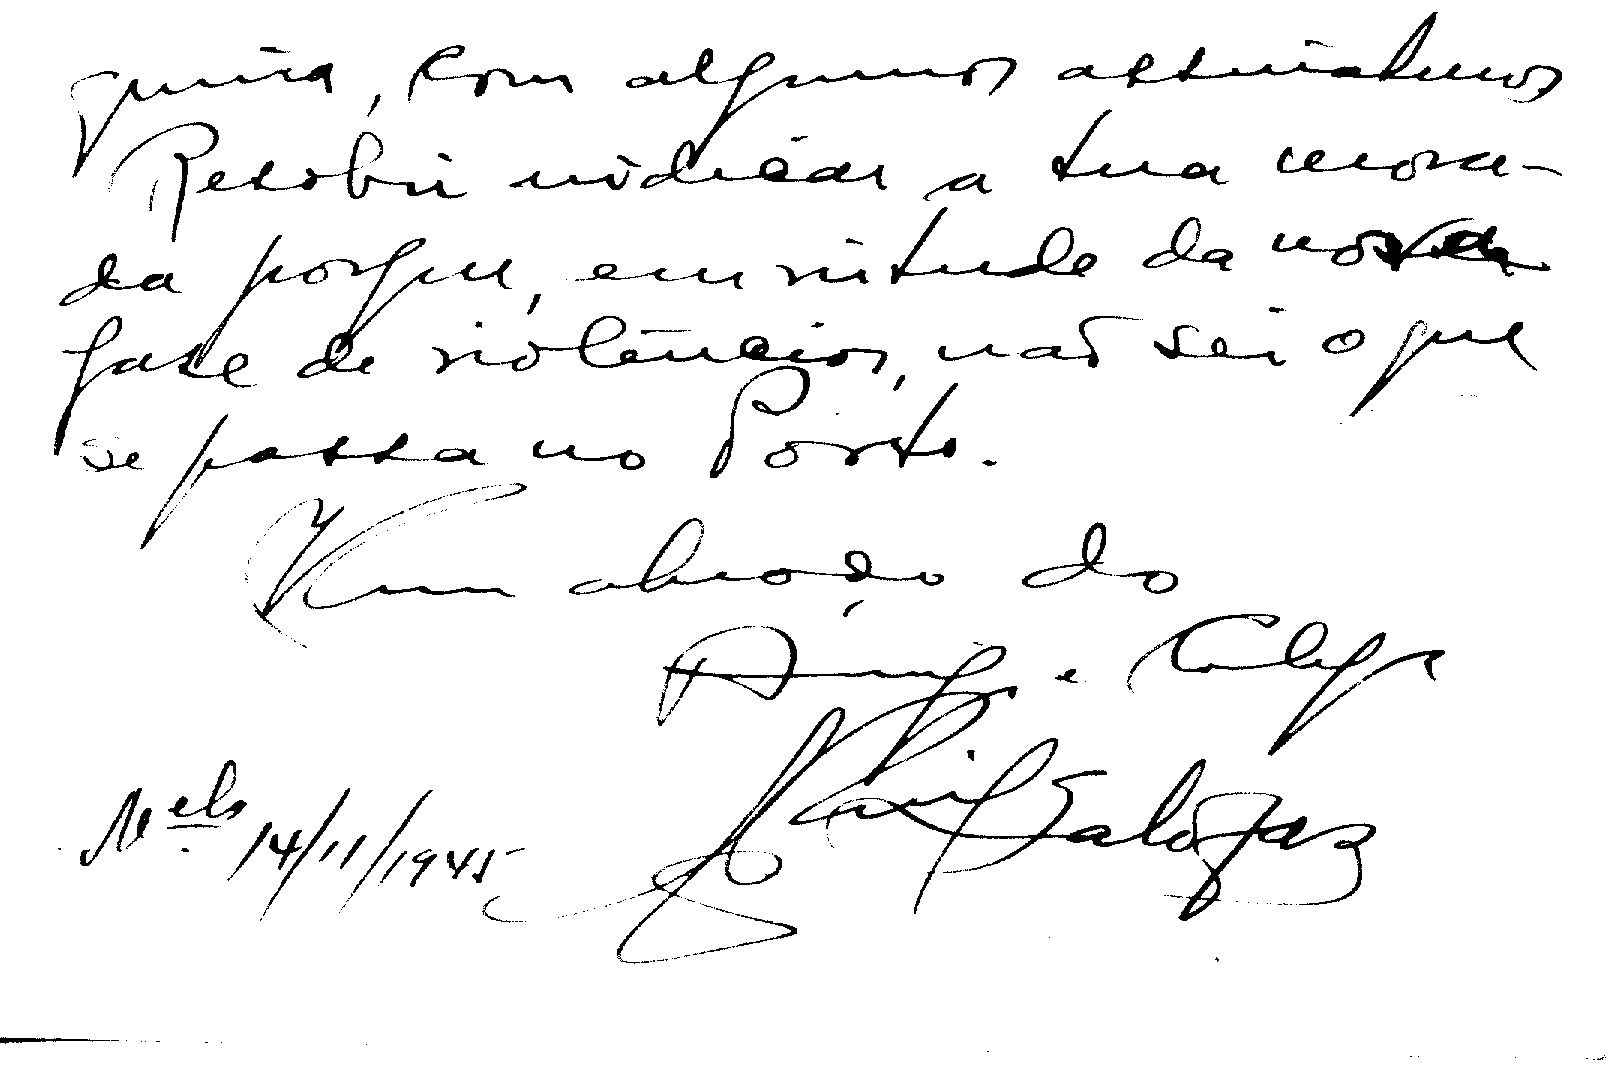 guira, com algumas assinaturas
Resolvi indicar a tua mora-
da porque, em virtude da nova
fase de violências, não sei o que
se passa no Porto.
Um abraço do
Amigo e Colega
Salgaz
Mels 14/11/1945